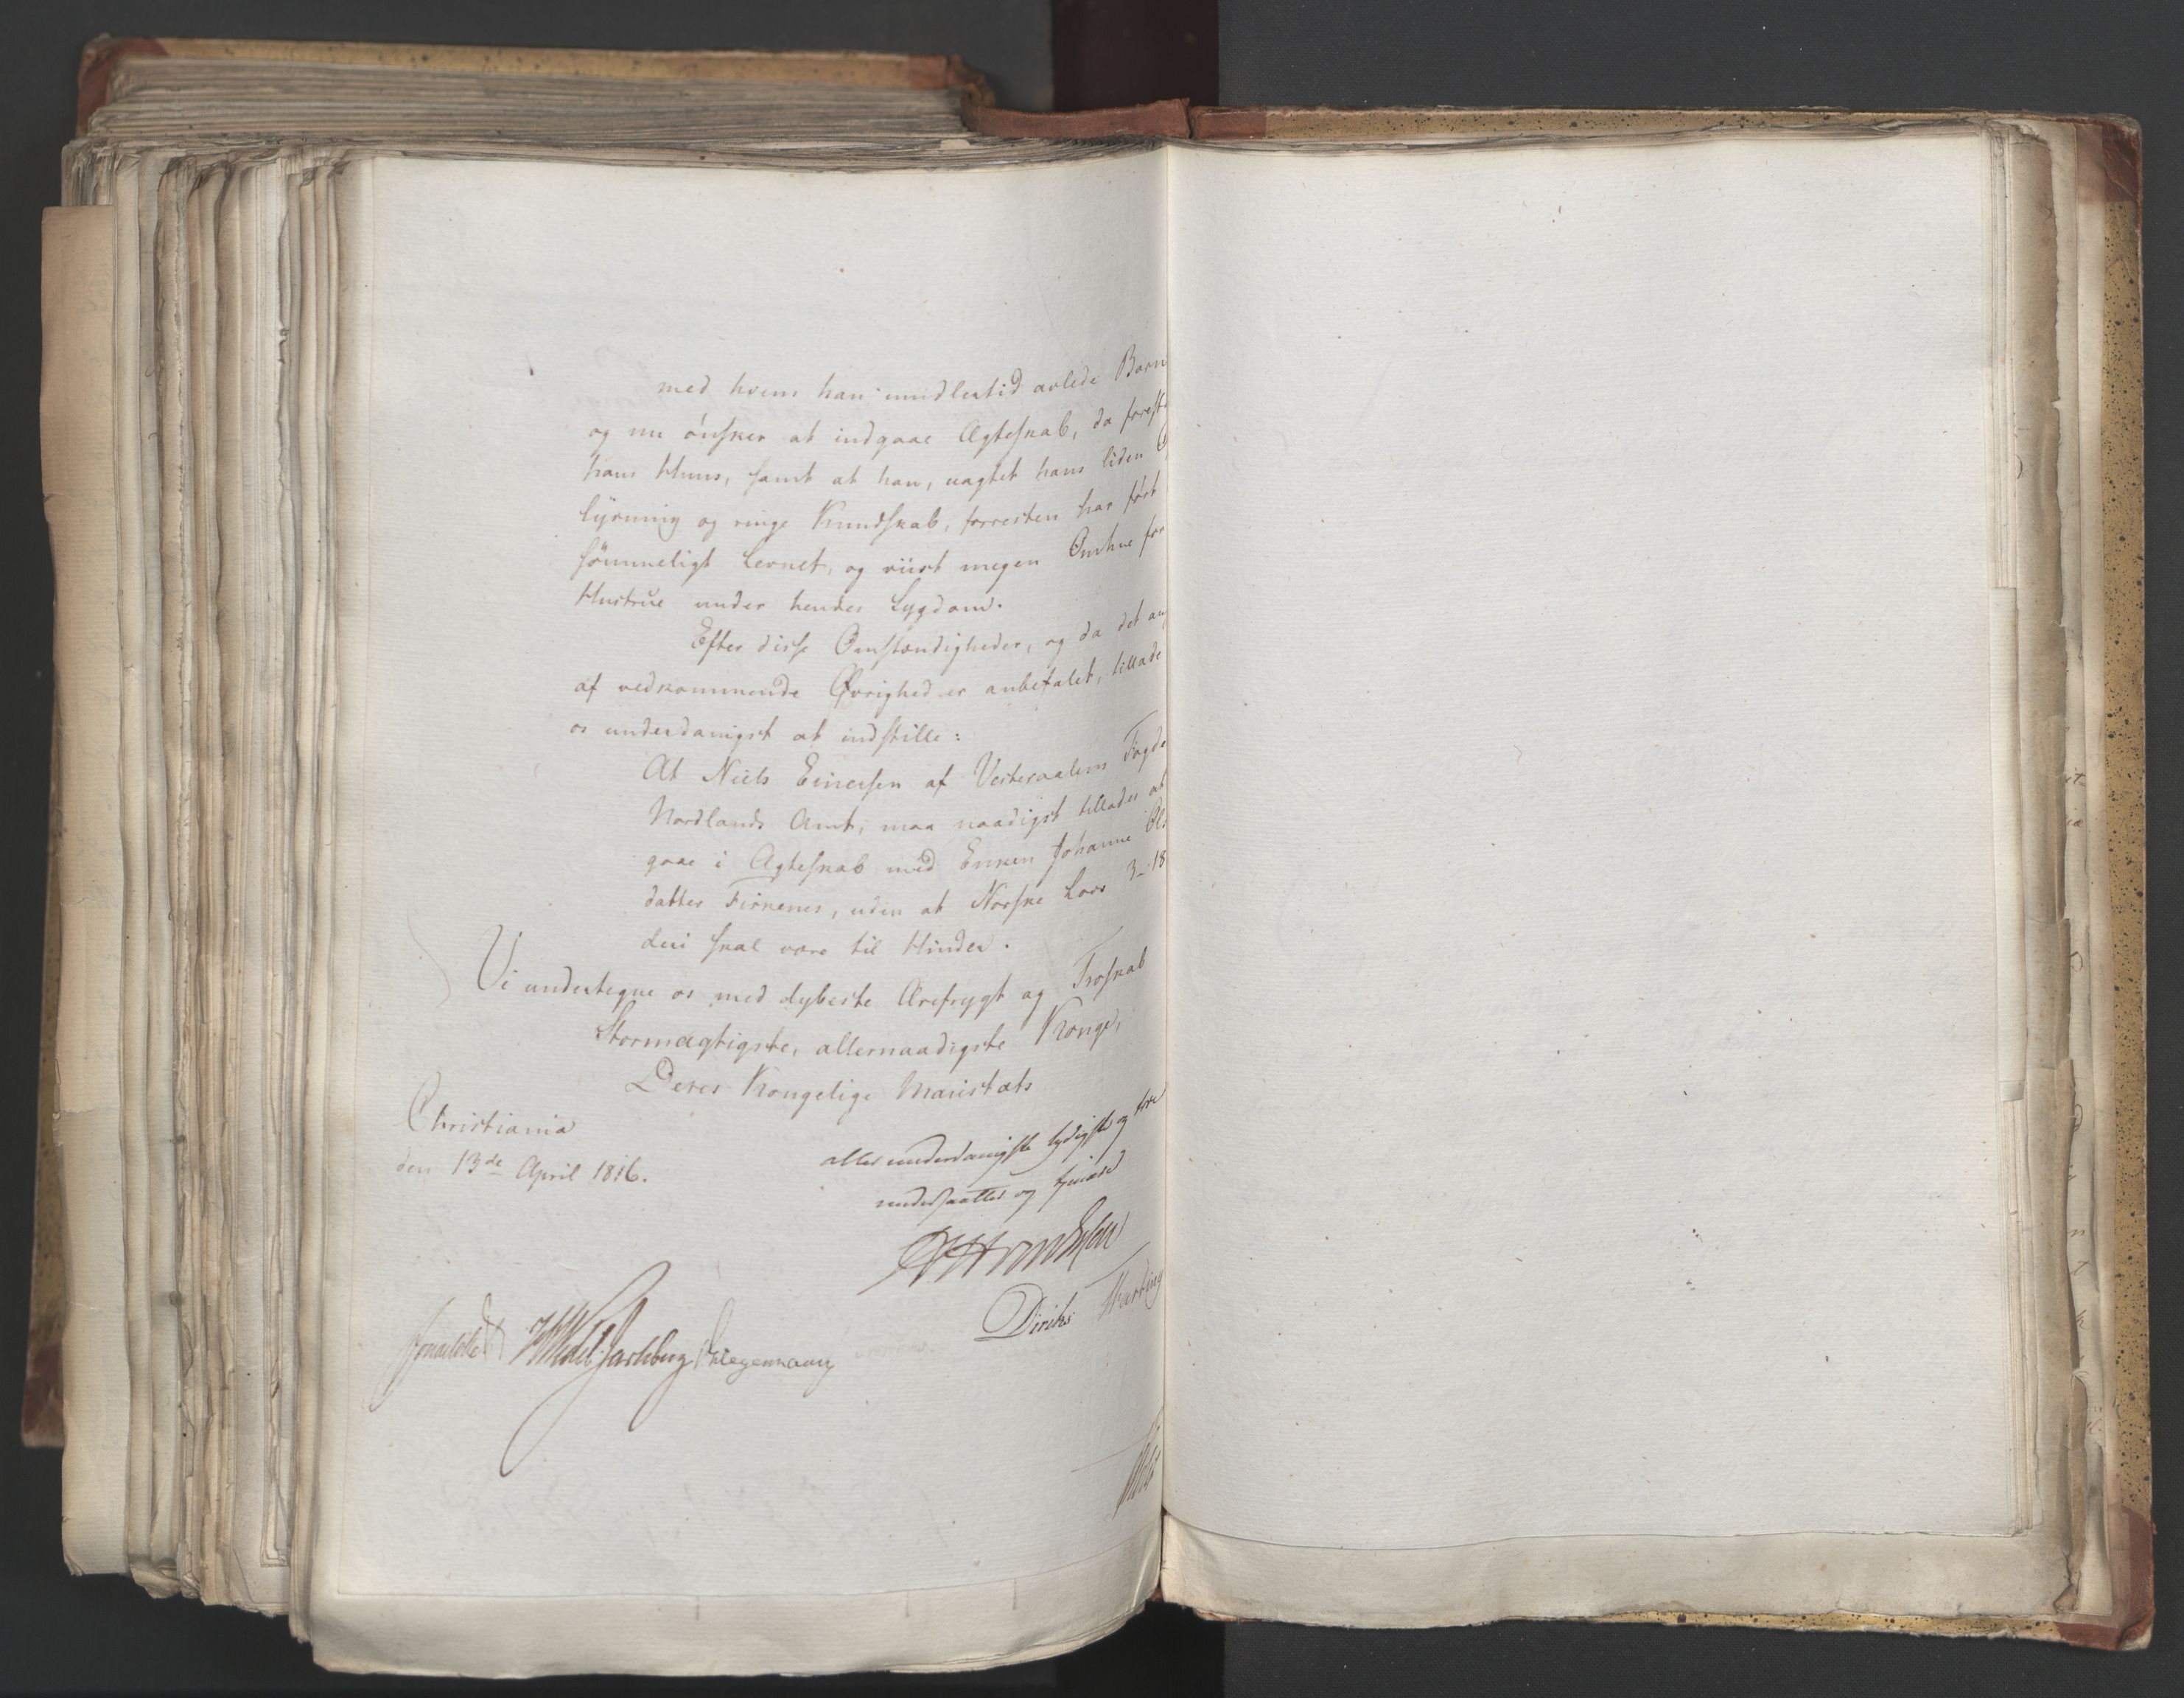 med hvem han imidlertid avlede Børn
og nu ønsker at indgaae Ægteskab, da forest
hans Huus, samt at han, uagtet hans liden O
lysning og ringe Kundskab, forresten har ført
sømmeligt Levnet, og viist megen Omhue for
Hustrue under hendes Sygdom.
Efter disse Omstændigheder, og da det an
af vedkommende Øvrighed er anbefalet, tillade
os underdanigst at indstille:
At Niels Einersen af Vesteraalens Fogde
Nordlands Amt, maa naadigst tillades at
gaae i Ægteskab med Enken Johanne Ols
datter Finnenes, uden at Norske Lovs 3-18
deri skal være til Hinder.
Vi undertegne os med dybeste Ærefrygt og Troskab
Stormægtigste, allernaadigste Konge,
Deres Kongelige Majestæts
Christiania
den 13de April 1816.
allerunderdanigste lydigste og troe
undersaatter og tjenere
Diriks
WedelJarlsberg Krieger